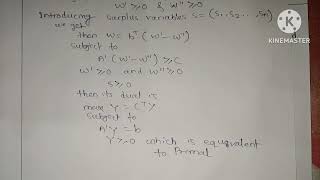 W' ≥0 & W'' ≥0
Introducing surplus variables S = (S1, S2 ..., Sn)
we get
then W = bᵀ (W' - W'')
subject to
A' (W' - W'') ≥ C
W' ≥ 0 and W'' ≥ 0
S ≥ 0
then its dual is
max Y = CᵀY
subject to
A'Y = b
Y ≥ 0 which is equivalent
to Primal
KINEMASTER